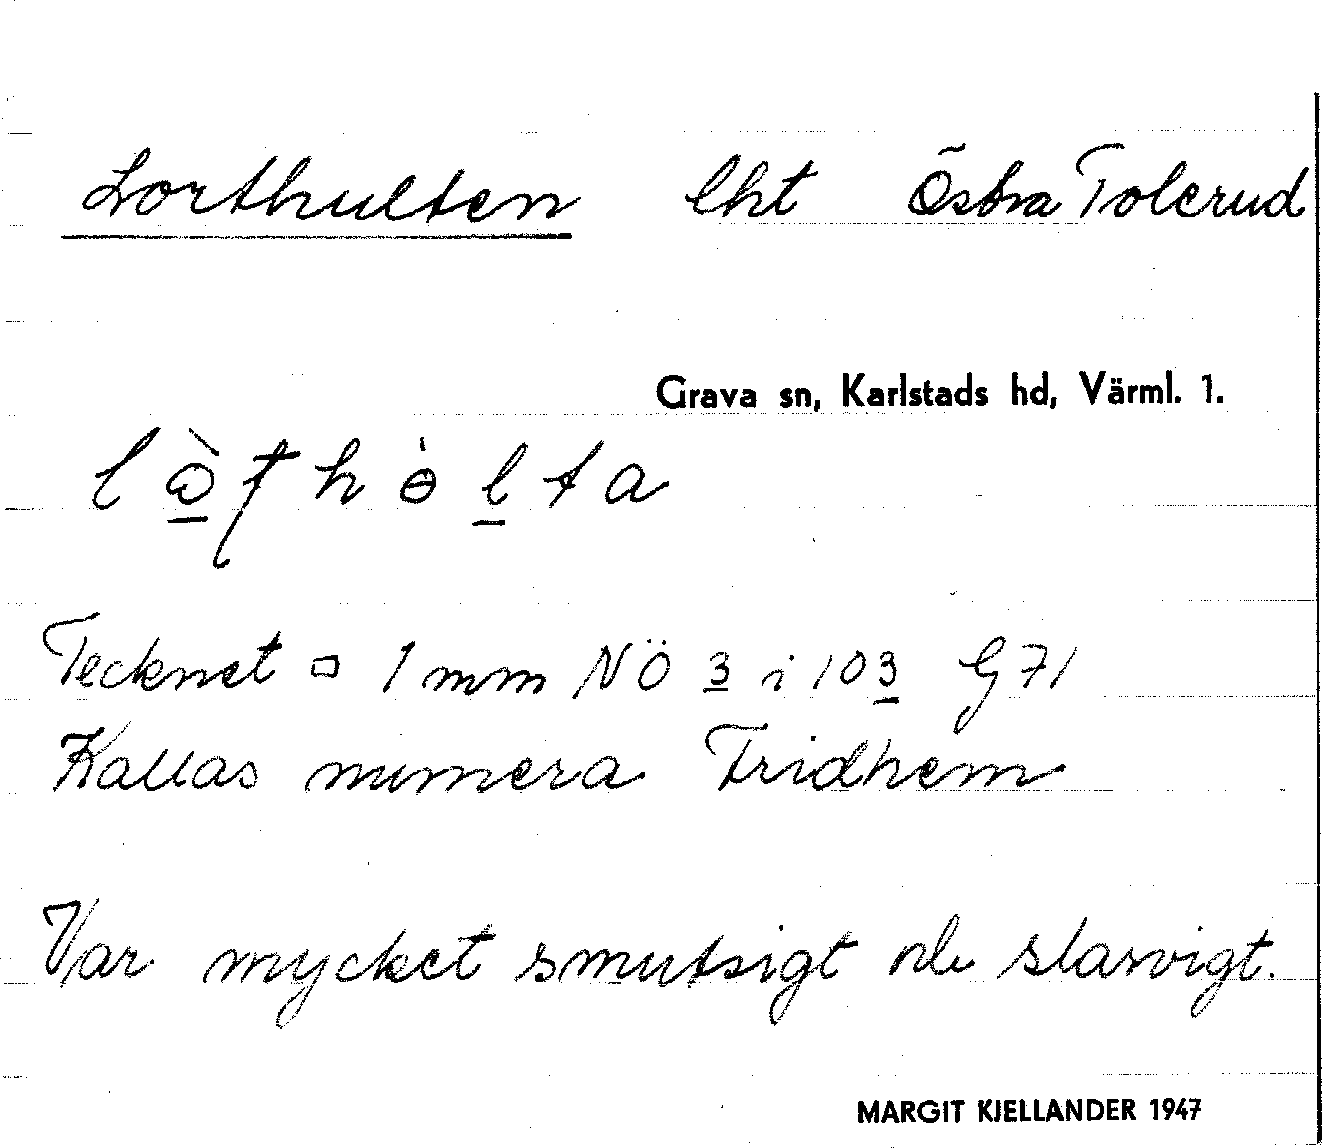 Lorthulten lht Östra Tolerud
Grava sn, Karlstads hd, Värml. 1.
Tecknet □ 1 mm NÖ 3 i 103 G 71
Kallas numera Fridhem
Var mycket smutsigt och slarvigt.
MARGIT KJELLANDER 1947